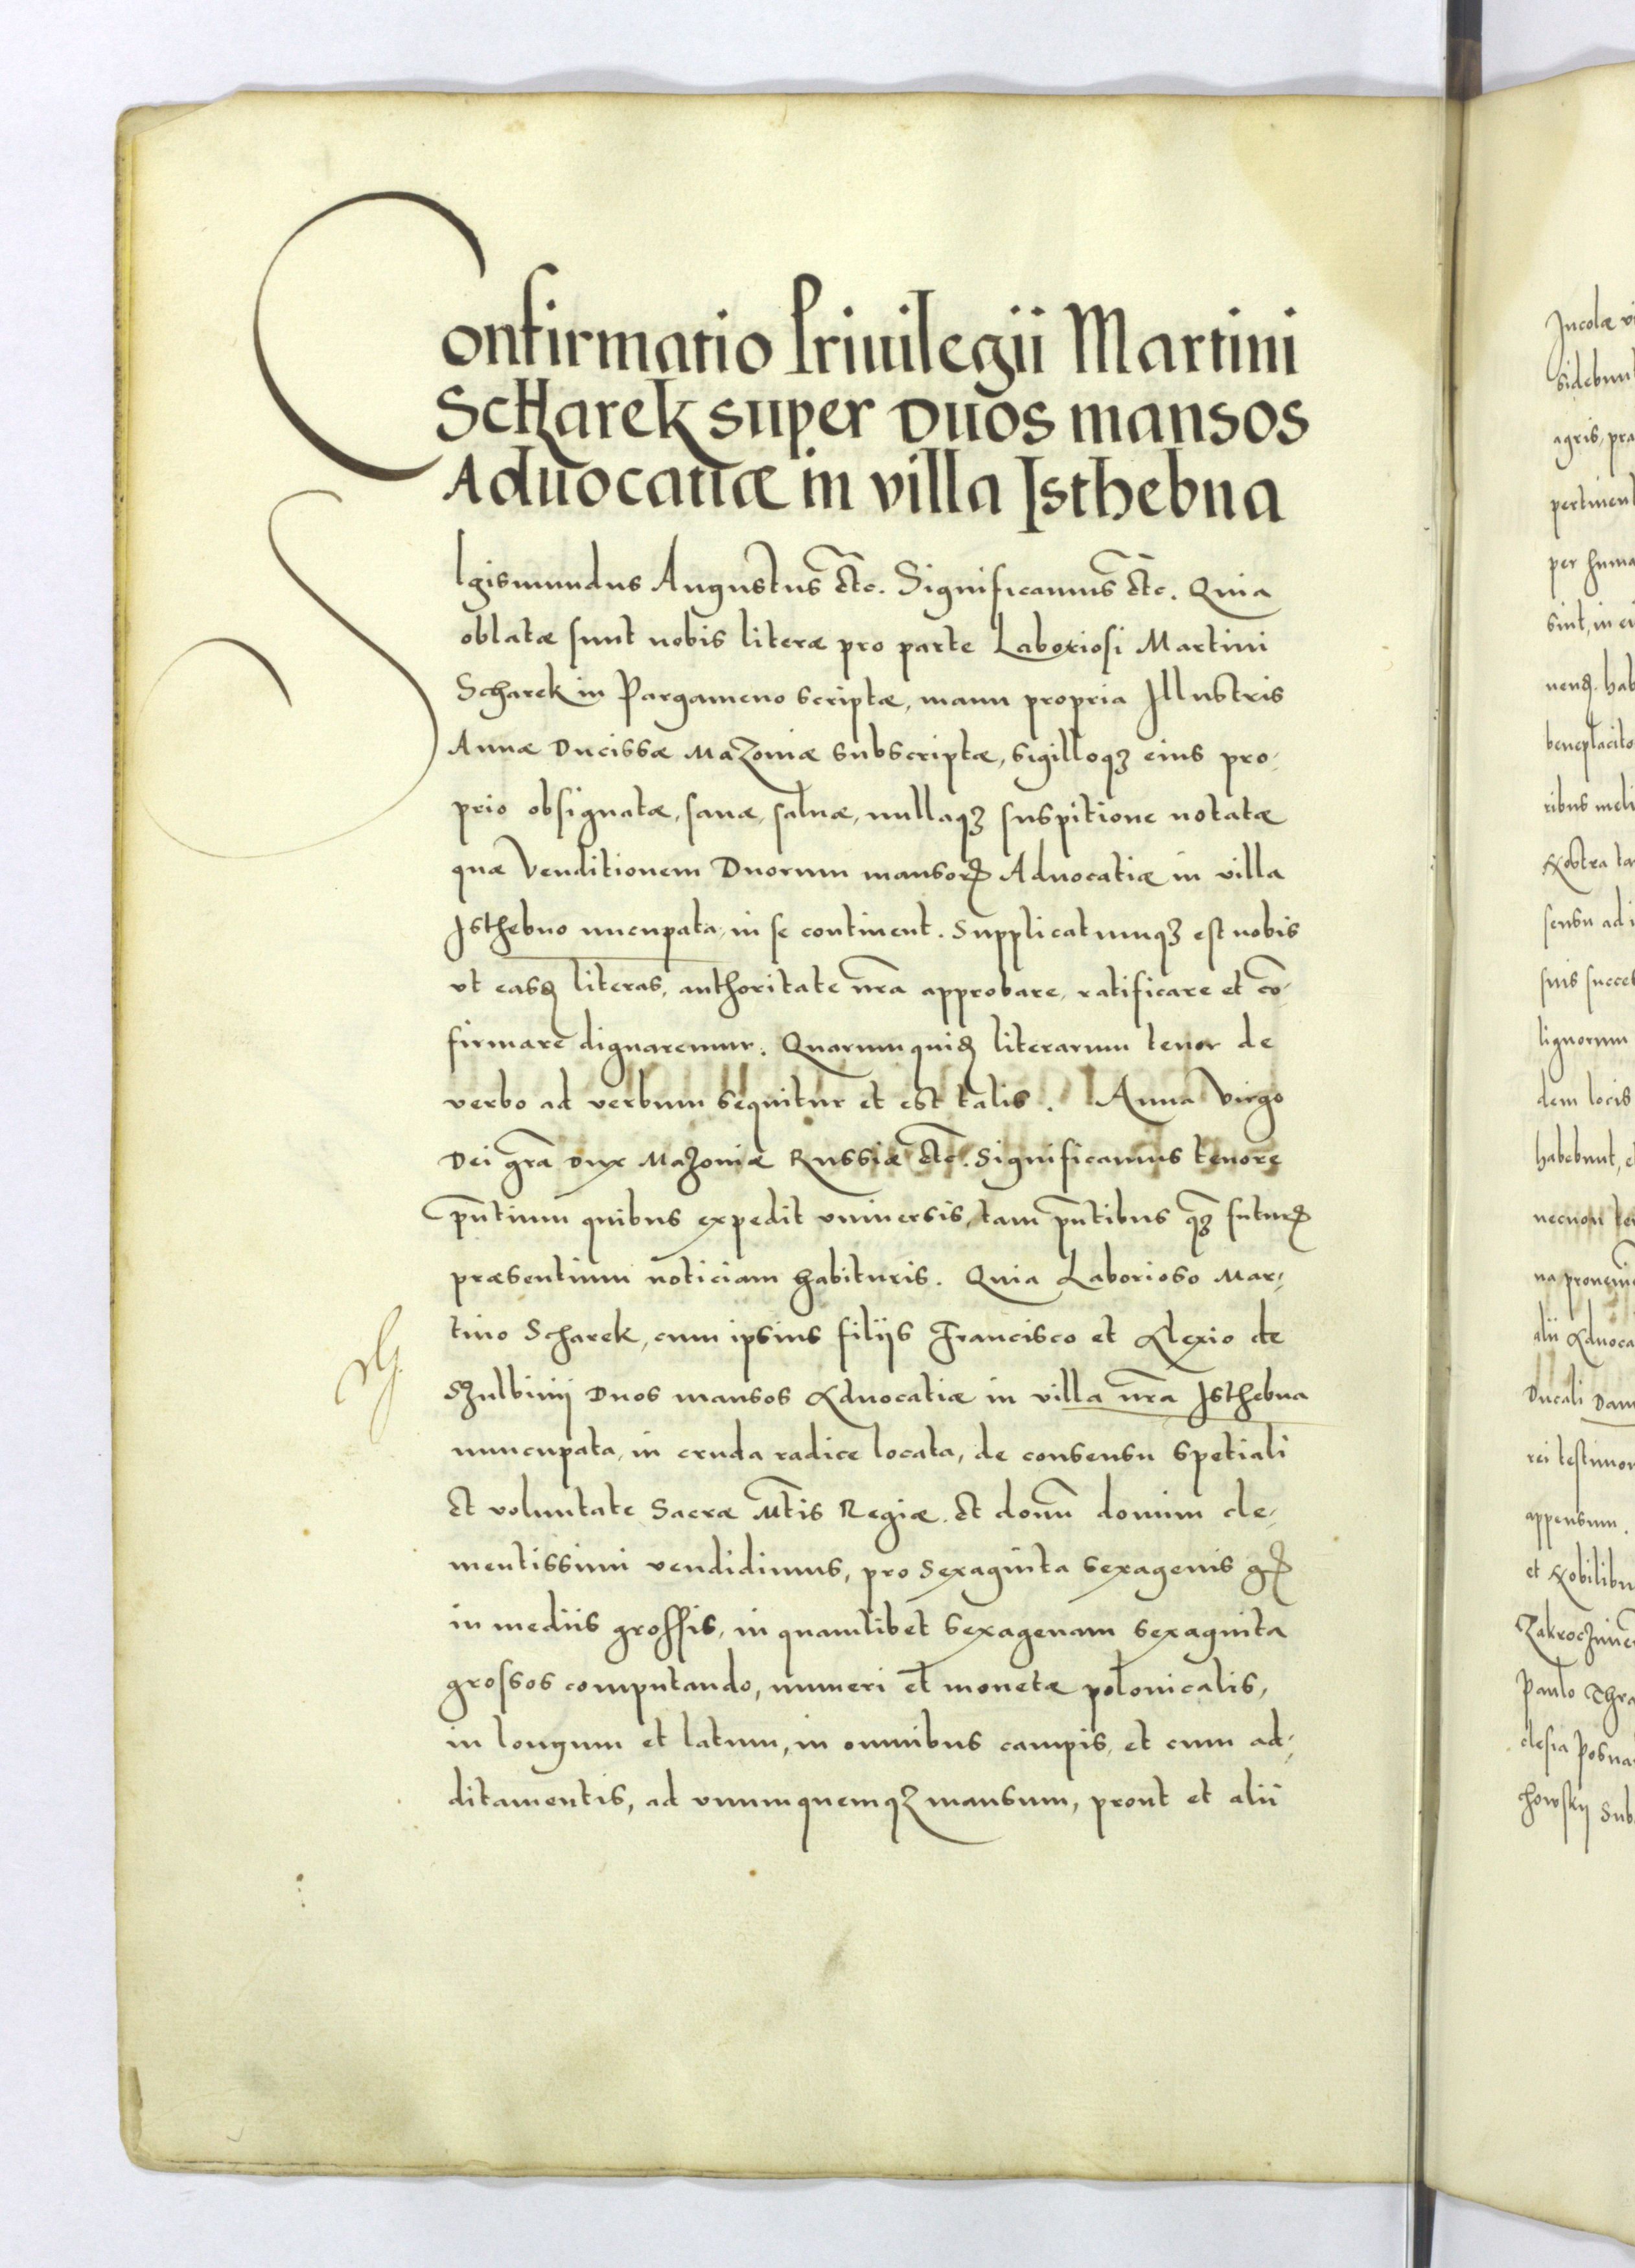 Confirmatio Priuilegii Martini
Scharek super Duos mansos
Aduocatiæ in villa Isthebna
SIgismundus Augustus etc. Significamus etc. Quia
oblatæ sunt nobis literæ pro parte Laboriosi Martini
Scharek in Pargameno scriptæ, manu propria Illustris
Annæ Ducissæ Mazoniæ subscriptæ, sigilloqȝ eius pro-
prio obsignatæ, sanæ, saluæ, nullaqȝ suspitione notatæ
quæ Venditionem Duorum mansorꝝ Aduocatiæ in villa
Isthebno nucupata, in se continent. Supplicatumqȝ est nobis
vt easꝺ literas, authoritate nr̃a approbare, ratificare et cõ-
firmare dignaremur. Quarumquiꝺ literarum tenor de
verbo ad verbum sequitur et est talis. Anna Virgo
Dei gr̃a Dux Mazoniæ Russiæ etc. Significamus tenore
pñtium quibus expedit vniuersis, tam pñtibus qȝ futurꝭ
præsentium noticiam habituris. Quia Laborioso Mar-
tino Scharek, cum ipsius filijs Francisco et Alexio de
Szulbinij Duos mansos Aduocatiæ in villa nr̃a Isthebna
nuncupata, in cruda radice locata, de consensu spetiali
et voluntate Sacræ Mt̃is Regiæ. et domñ domini cle-
mentissimi vendidimus, pro sexaginta sexagenis gꝝ
in mediis grossis, in quamlibet sexagenam sexaginta
grossos computando, numeri et monetæ polonicalis,
in longum et latum, in omnibus campis, et cum ad-
ditamentis, ad vnumquemqȝ mansum, prout et alii
Incolæ
sidebunt
agris, pra
pertinent
per huma
sint, in ei
beneplacito
ribus meli
sensu ad i
suis succes
lignorum
dem locis
habebunt,
necnon
alii Aduoca
Ducali Dam
rei testimon
appensum.
et Nobilibu
Zakroczimen
Paulo Thra
clesia Posna
chowskij Sub